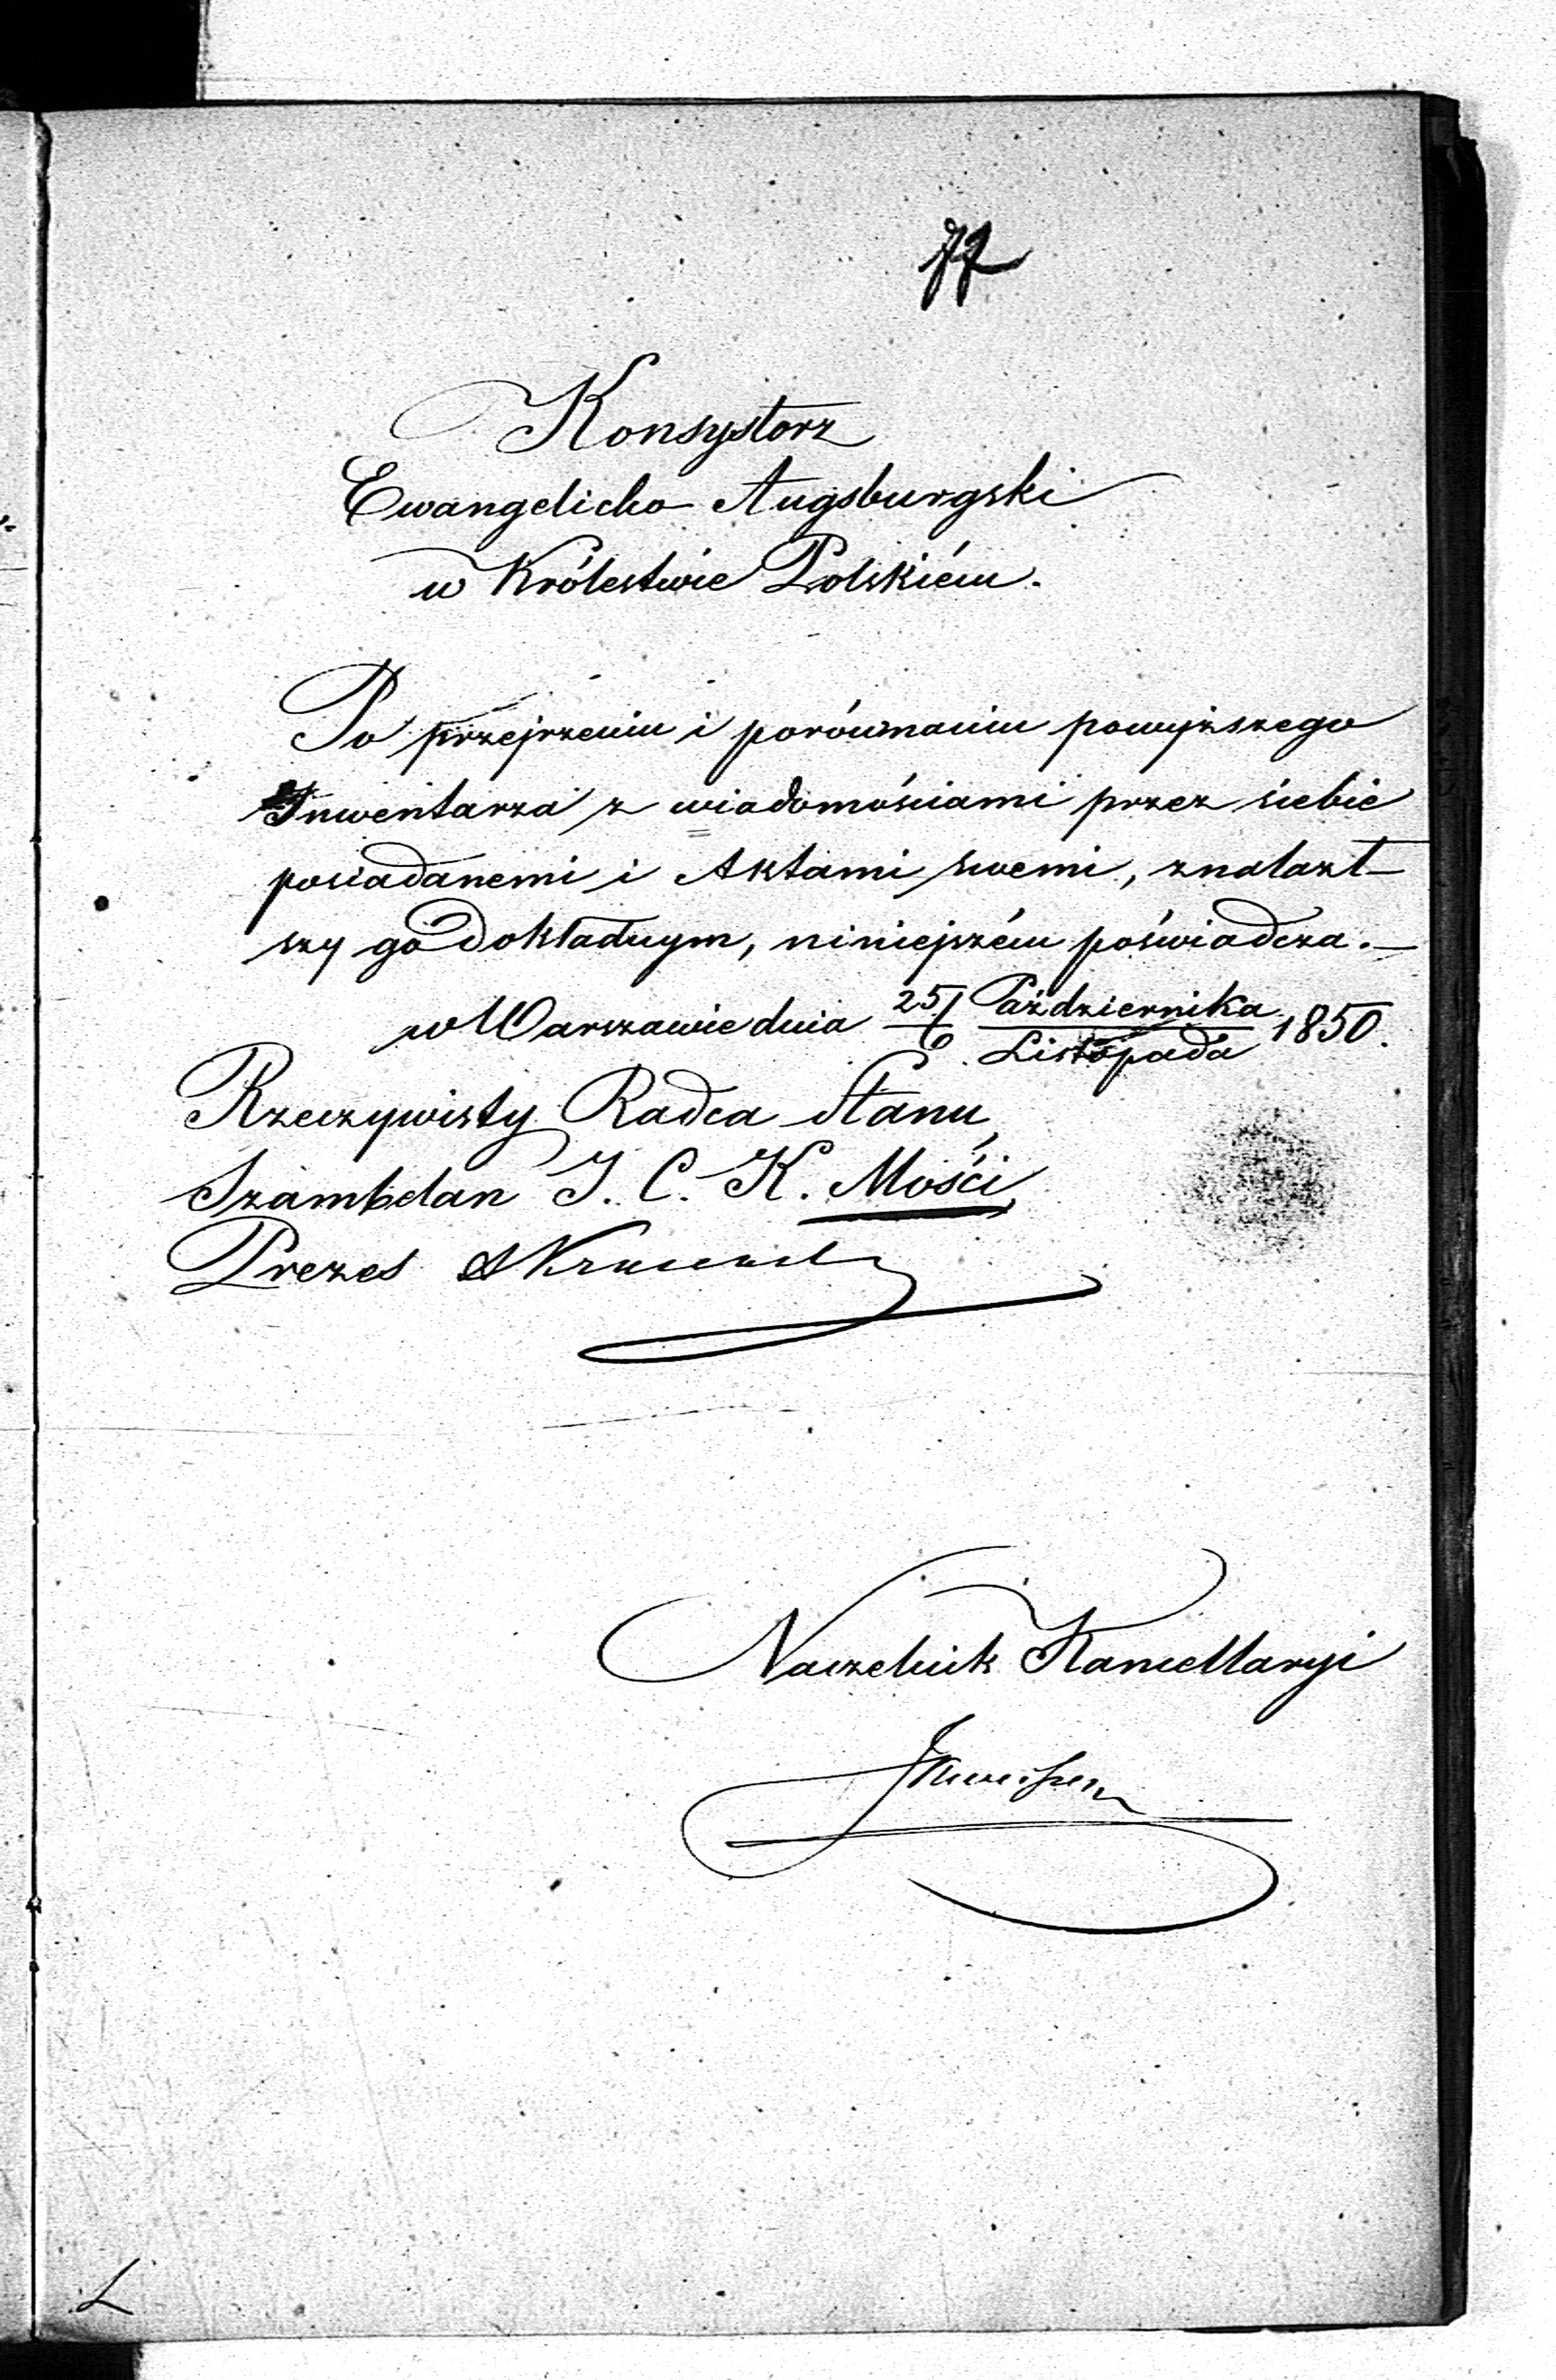 77
Konsystorz
Ewangelicko Augsburgski
w Królestwie Polskiém.
Po przejrzeniu i porównaniu powyższego
Inwentarza z wiadomościami przez siebie
posiadanemi i Aktami swemi, znalazł-
szy go dokładnym, niniejszém poświadcza.—
w Warszawie dnia 25/6 Października/Listopada 1850.
Rzeczywisty Radca Stanu,
Szambelan J. C. K. Mości,
Prezes
Naczelnik Kancellaryi
L